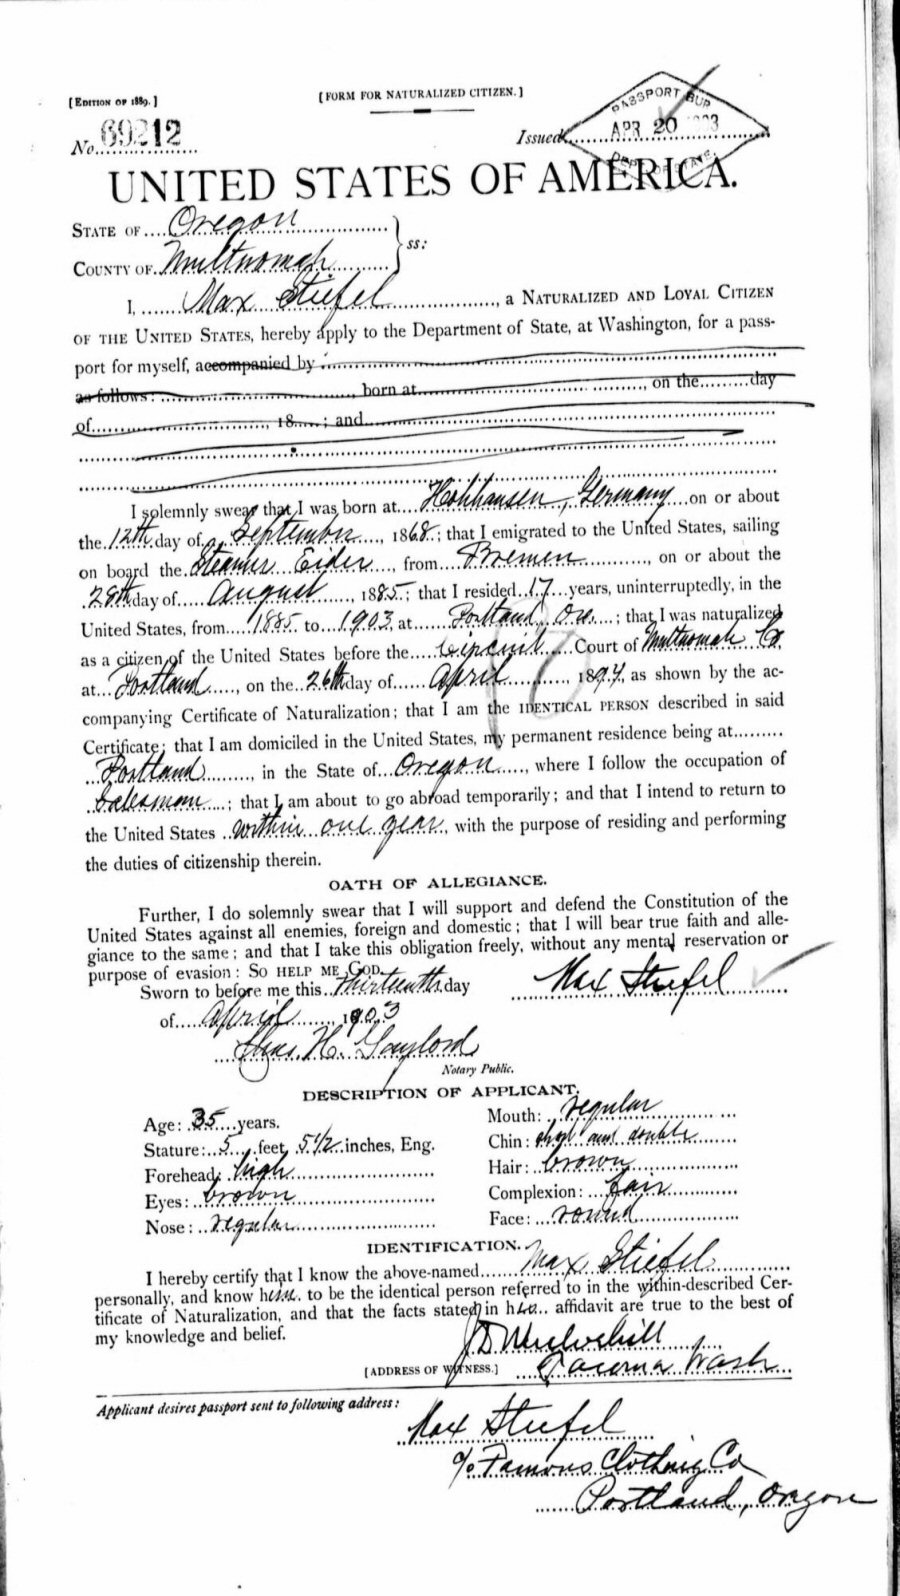 [EDITION OF 1889.]
[FORM FOR NATURALIZED CITIZEN.]
PASSPORT BUR
No. 69212
Issued APR 20 1903
DEPT OF STATE.
UNITED STATES OF AMERICA.
STATE OF Oregon
COUNTY OF Multnomah } ss:
I, Max Stiefel, a NATURALIZED AND LOYAL CITIZEN
OF THE UNITED STATES, hereby apply to the Department of State, at Washington, for a pass-
port for myself, accompanied by
as follows: , born at , on the day
of , 18 ; and
I solemnly swear that I was born at , Germany on or about
the 12th day of September, 1868; that I emigrated to the United States, sailing
on board the Steamer Eider, from Bremen, on or about the
28th day of August, 1885; that I resided 17 years, uninterruptedly, in the
United States, from 1885 to 1903 at Portland, Ore.; that I was naturalized
as a citizen of the United States before the Circuit Court of Multnomah Co.
at Portland, on the 26th day of April, 1894, as shown by the ac-
companying Certificate of Naturalization; that I am the IDENTICAL PERSON described in said
Certificate; that I am domiciled in the United States, my permanent residence being at
Portland, in the State of Oregon, where I follow the occupation of
Salesman; that I am about to go abroad temporarily; and that I intend to return to
the United States within one year, with the purpose of residing and performing
the duties of citizenship therein.
OATH OF ALLEGIANCE.
Further, I do solemnly swear that I will support and defend the Constitution of the
United States against all enemies, foreign and domestic; that I will bear true faith and alle-
giance to the same; and that I take this obligation freely, without any mental reservation or
purpose of evasion: SO HELP ME GOD.
Sworn to before me this thirteenth day
Max Stiefel
of April, 1903
Chas. H. Gaylord
Notary Public.
DESCRIPTION OF APPLICANT.
Age: 35 years.
Stature: 5 feet, 5 1/2 inches, Eng.
Forehead: high
Eyes: brown
Nose: regular
Mouth: regular
Chin: and double
Hair: brown
Complexion: fair
Face: round
IDENTIFICATION.
I hereby certify that I know the above-named Max Stiefel
personally, and know him to be the identical person referred to in the within-described Cer-
tificate of Naturalization, and that the facts stated in his affidavit are true to the best of
my knowledge and belief.
[ADDRESS OF WITNESS.] Tacoma Wash
Applicant desires passport sent to following address:
Max Stiefel
c/o Famous Clothing Co
Portland, Oregon